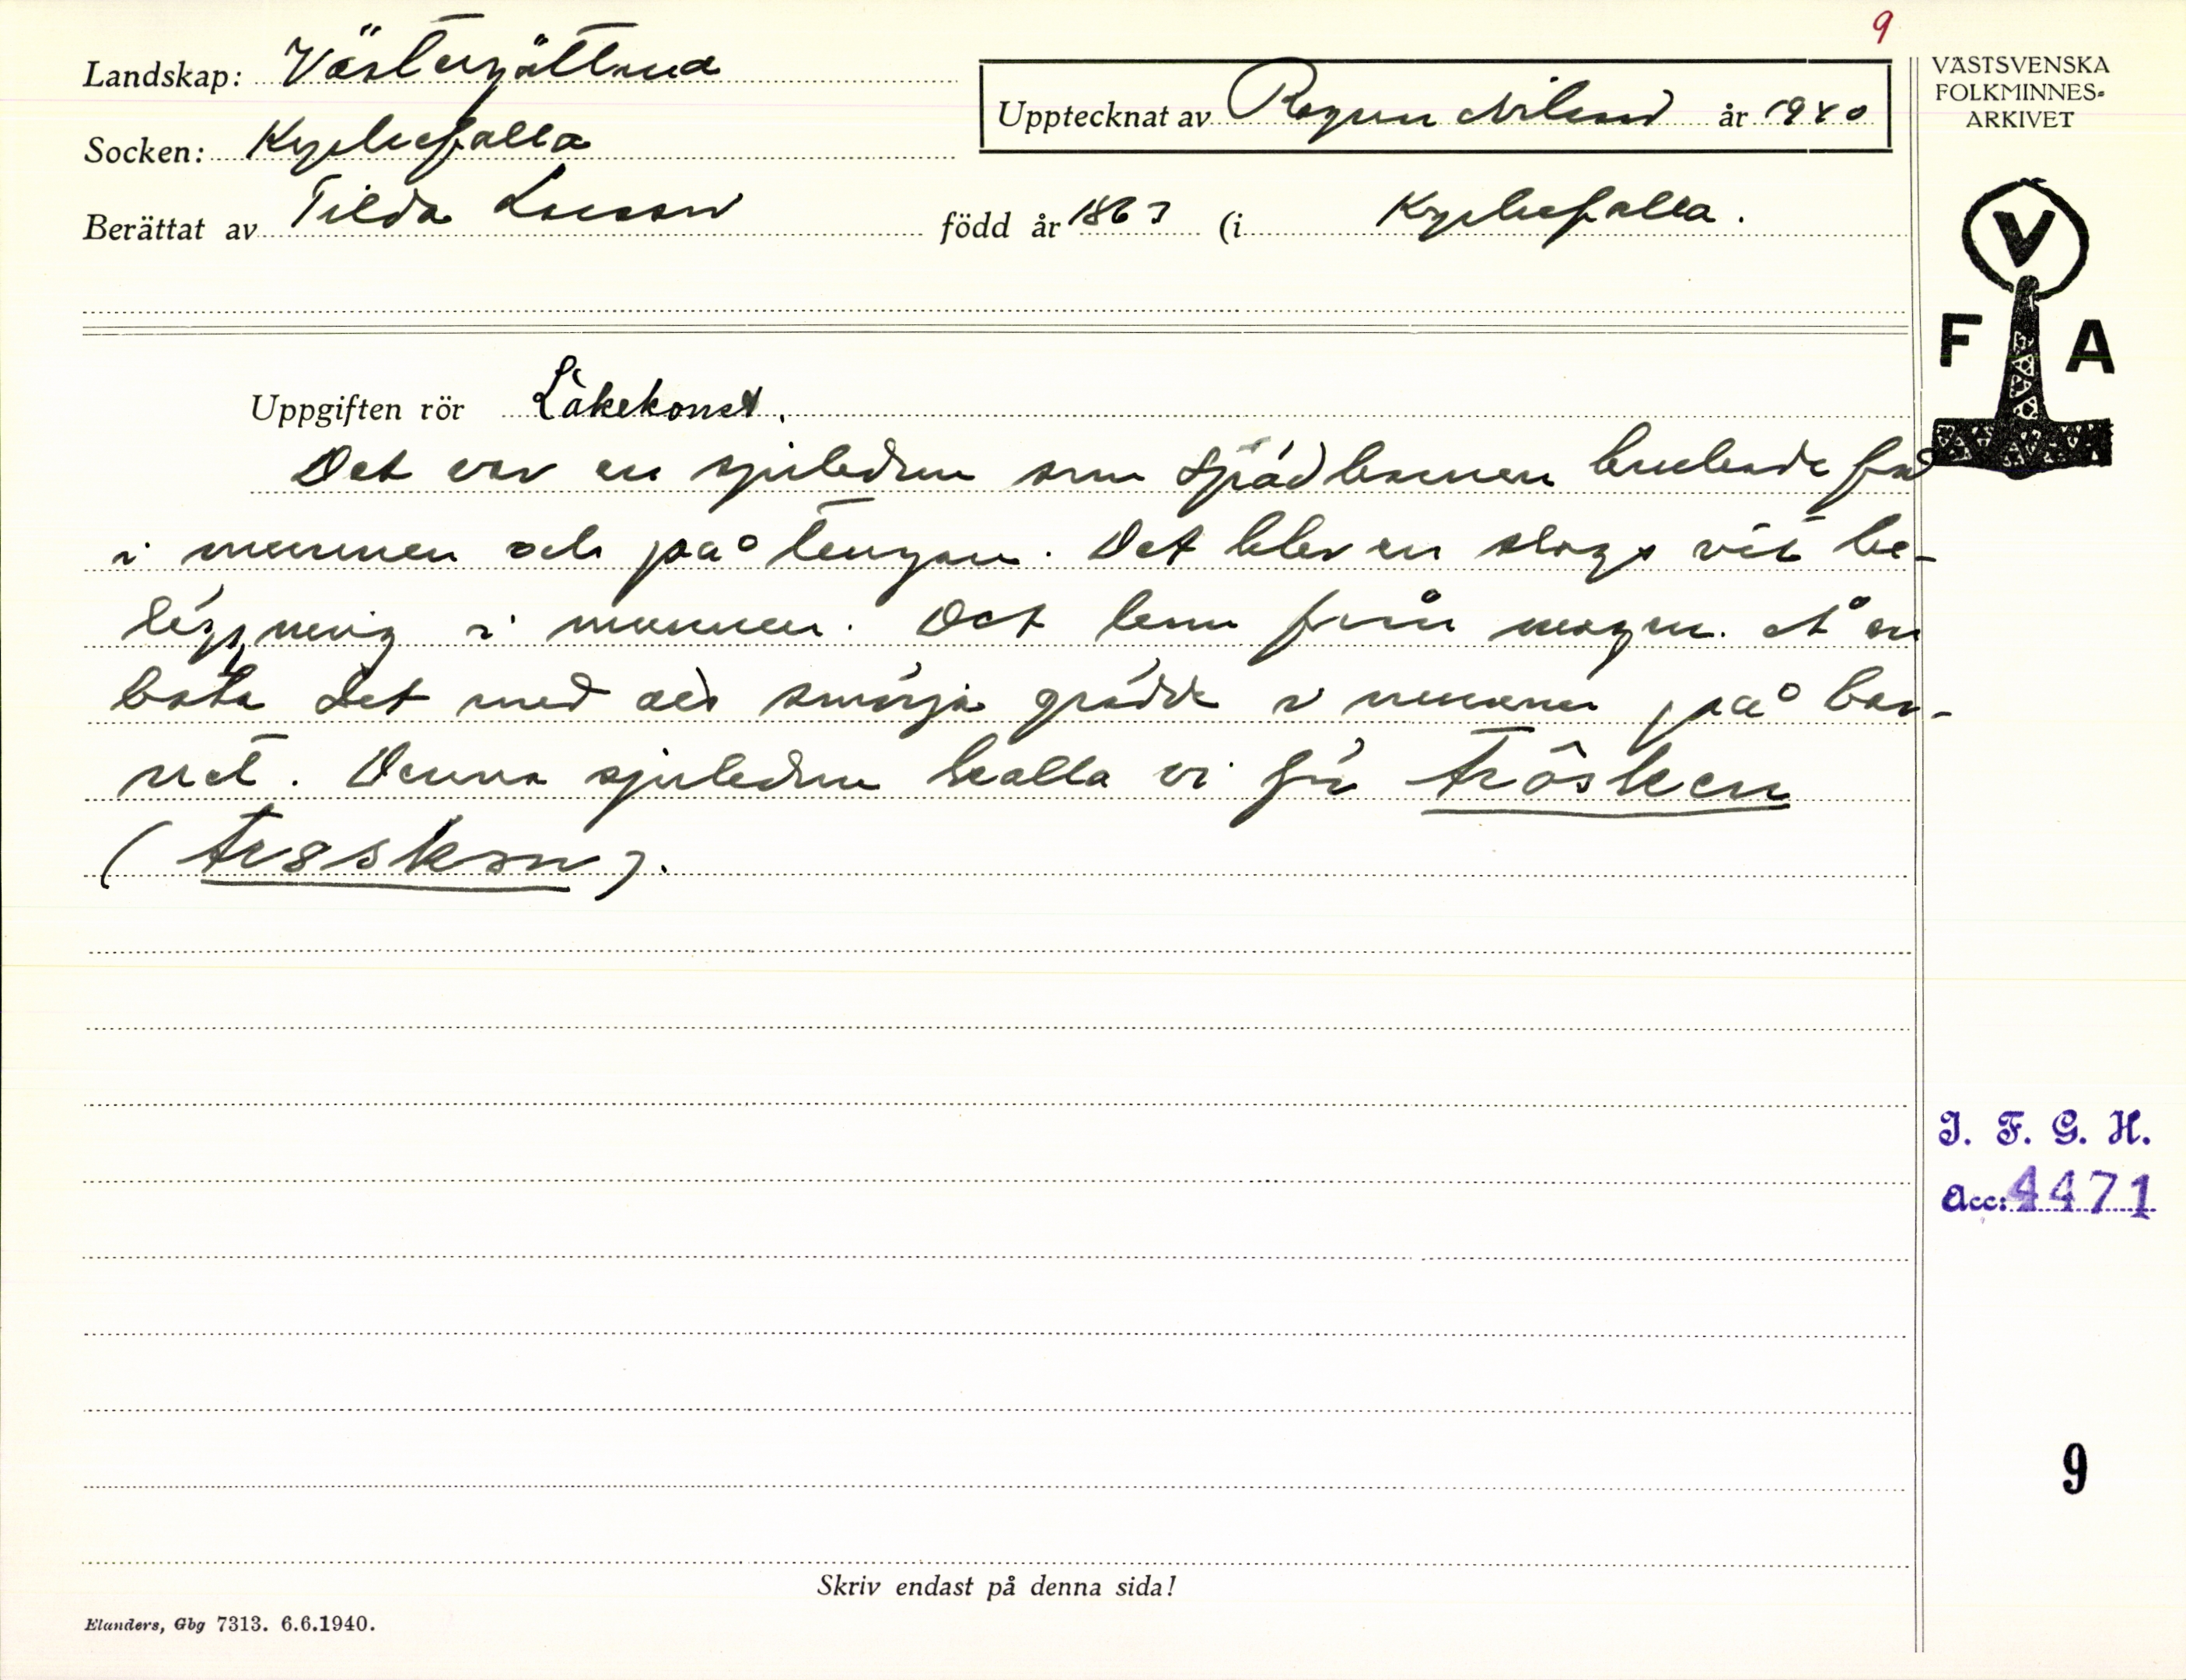 9
Landskap: Västergötland
Socken: Kyrkefalla
Upptecknat av Ragnar Nilsson år 1940
Berättat av Tilda Larsson född år 1863 (i Kyrkefalla.
VÄSTSVENSKA
FOLKMINNES-
ARKIVET
V
F A
Uppgiften rör Läkekonst.
Det var en sjukdom som spädbarnen brukade få
i munnen och på tungan. Det blev en slags vit be-
läggning i munnen. Det kom från magen. Å en
bota det med att smörja grädde i munnen på bar-
net. Denna sjukdom kalla vi för trösken
(
).
I. F. G. H.
Acc: 4471
9
Skriv endast på denna sida!
Elanders, Gbg 7313. 6.6.1940.